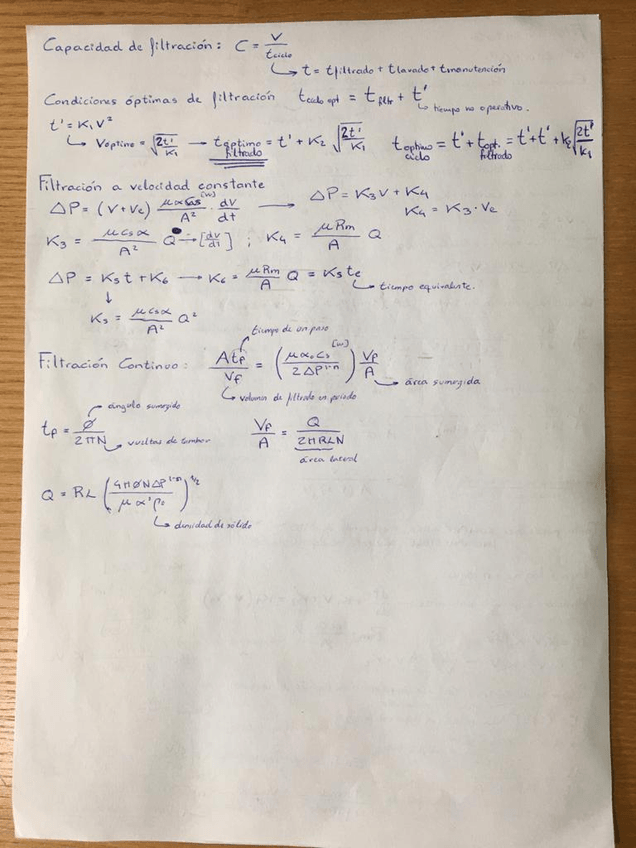 Capacidad de filtración: C = V / tciclo
↳ t = tfiltrado + tlavado + tmanutención
Condiciones óptimas de filtración tciclo opt = tfiltr + t'
↳ tiempo no operativo.
t' = K₁V²
↳ Vóptimo = √(2t'/K₁) → tóptimo filtrado = t' + K₂ √(2t'/K₁) tóptimo ciclo = t' + topt. filtrado = t' + t' + K₂ √(2t'/K₁)
Filtración a velocidad constante
ΔP = (V + Ve) μ α Cs [w] / A² · dV/dt → ΔP = K₃V + K₄
K₄ = K₃ · Ve
K₃ = μ Cs α / A² Q → [dV/dt] ; K₄ = μ Rm / A Q
ΔP = K₅t + K₆ → K₆ = μ Rm / A Q = K₅ te
↳ tiempo equivalente.
↓
K₅ = μ Cs α / A² Q²
tiempo de un paso
Filtración Continuo: A tp / Vf = (μ α₀ Cs [w] / 2 ΔP¹⁻ⁿ) Vp / A
↳ área sumergida
↳ volumen de filtrado en periodo
ángulo sumergido
tp = Ø / 2πN Vp / A = Q / 2πRLN
vueltas de tambor
área lateral
Q = RL (4πØNΔP¹⁻ⁿ / μ α' ρc)^1/2
↳ densidad de sólido